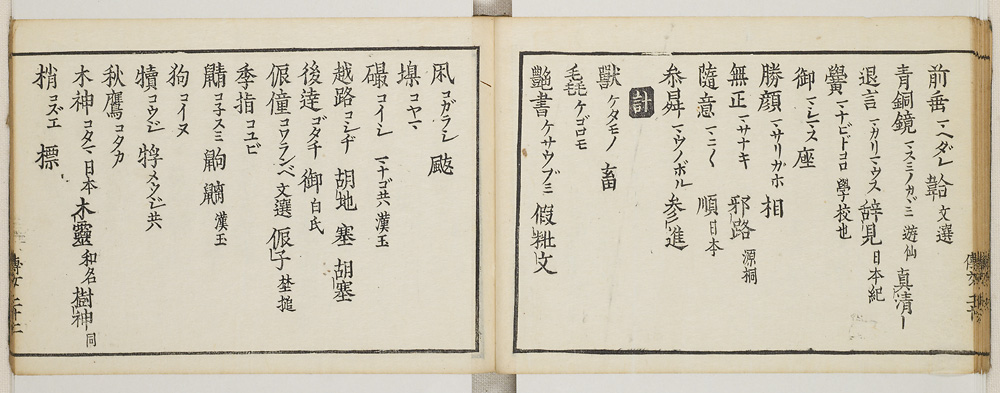 前垂マヘダレ 韐文選
青銅鏡マスミノカヾミ遊仙 真清ー
退言マカリマウス 辞見日本紀
黌マナビドコロ 學校也
御マシマス 座
勝顔マサリガホ 相
無正マサナキ 邪路源桐
隨意マニ〱 順日本
叅昇マウノボル 参進
計
獣ケタモノ 畜
毳ケゴロモ
艶書ケサウブミ 假粃文
凩コガラシ 颰
堁コヤマ
礌コイシ マナゴ共漢玉
越路コシヂ 胡地 塞 胡塞
後達ゴタチ 御白氏
侲僮コワランベ文選 侲子埜搥
季指コユビ
鼱コ子スミ 鼩 漢玉
狗コイヌ
犢コウジ 牸メウジ共
秋鷹コタカ
木神コタマ日本 木靈和名 樹神同
梢コズエ 標